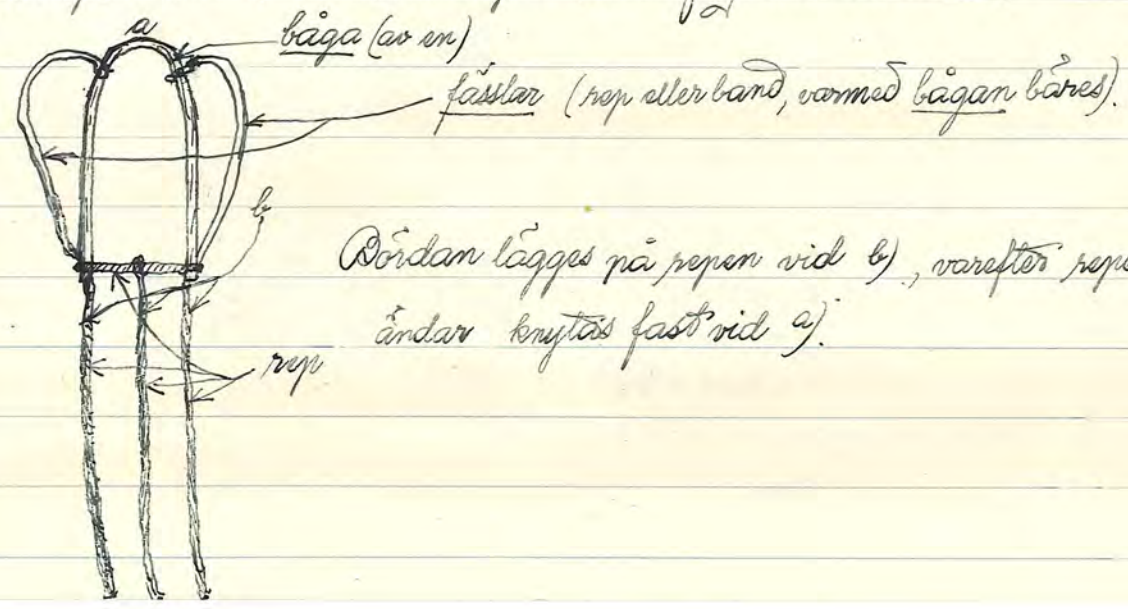 a
båga (av en)
fässlar (rep eller band, varmed bågan bäres).
b
Bördan lägges på repen vid b), varefter repe
ändar knytas fast vid a).
rep